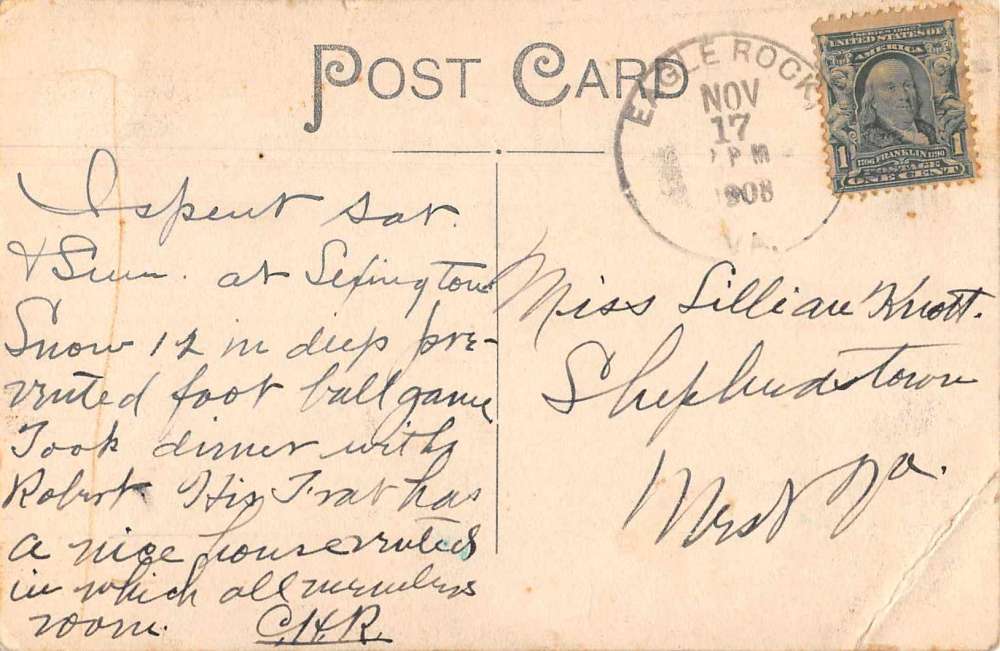 POST CARD
EAGLE ROCK,
NOV
17
PM
1908
VA.
SERIES 1902
UNITED STATES OF
AMERICA
1706 FRANKLIN 1790
1 POSTAGE 1
ONE CENT
I spent Sat.
& Sun. at Lexington
Snow 12 in deep pre-
vented foot ball game
Took dinner with
Robert His Frat has
a nice house rented
in which all members
room. C.H.R.
Miss Lillian Knott.
Shepherdstown
West Va.